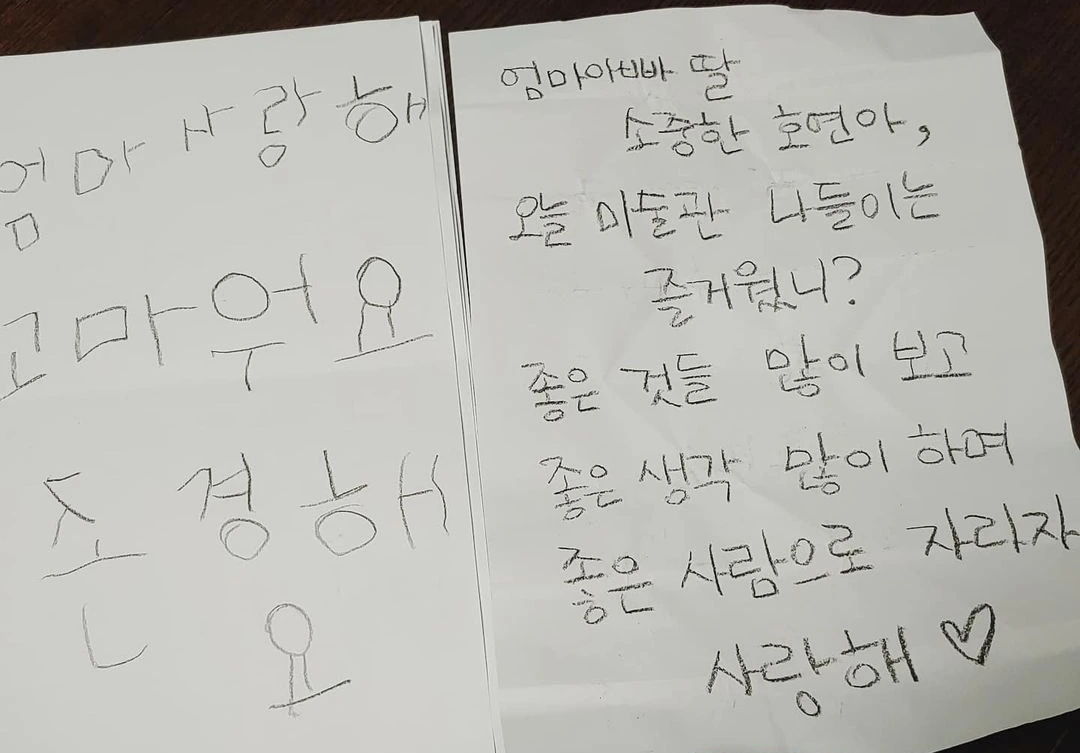 엄마 사랑해
고마우요
존경해
요
엄마아빠 딸
소중한 호연아,
오늘 미술관 나들이는
즐거웠니?
좋은 것들 많이 보고
좋은 생각 많이 하며
좋은 사람으로 자라자
사랑해